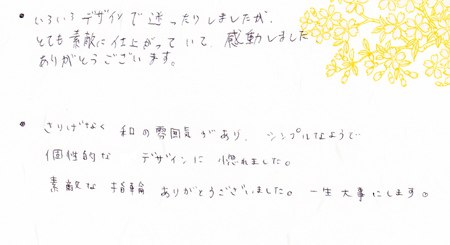 ・いろいろデザインで迷ったりしましたが、
とても素敵に仕上がっていて、感動しました
ありがとうございます。
・さりげなく 和の雰囲気があり、シンプルなようで
個性的な デザインに 惚れました。
素敵な 指輪 ありがとうございました。一生大事にします。